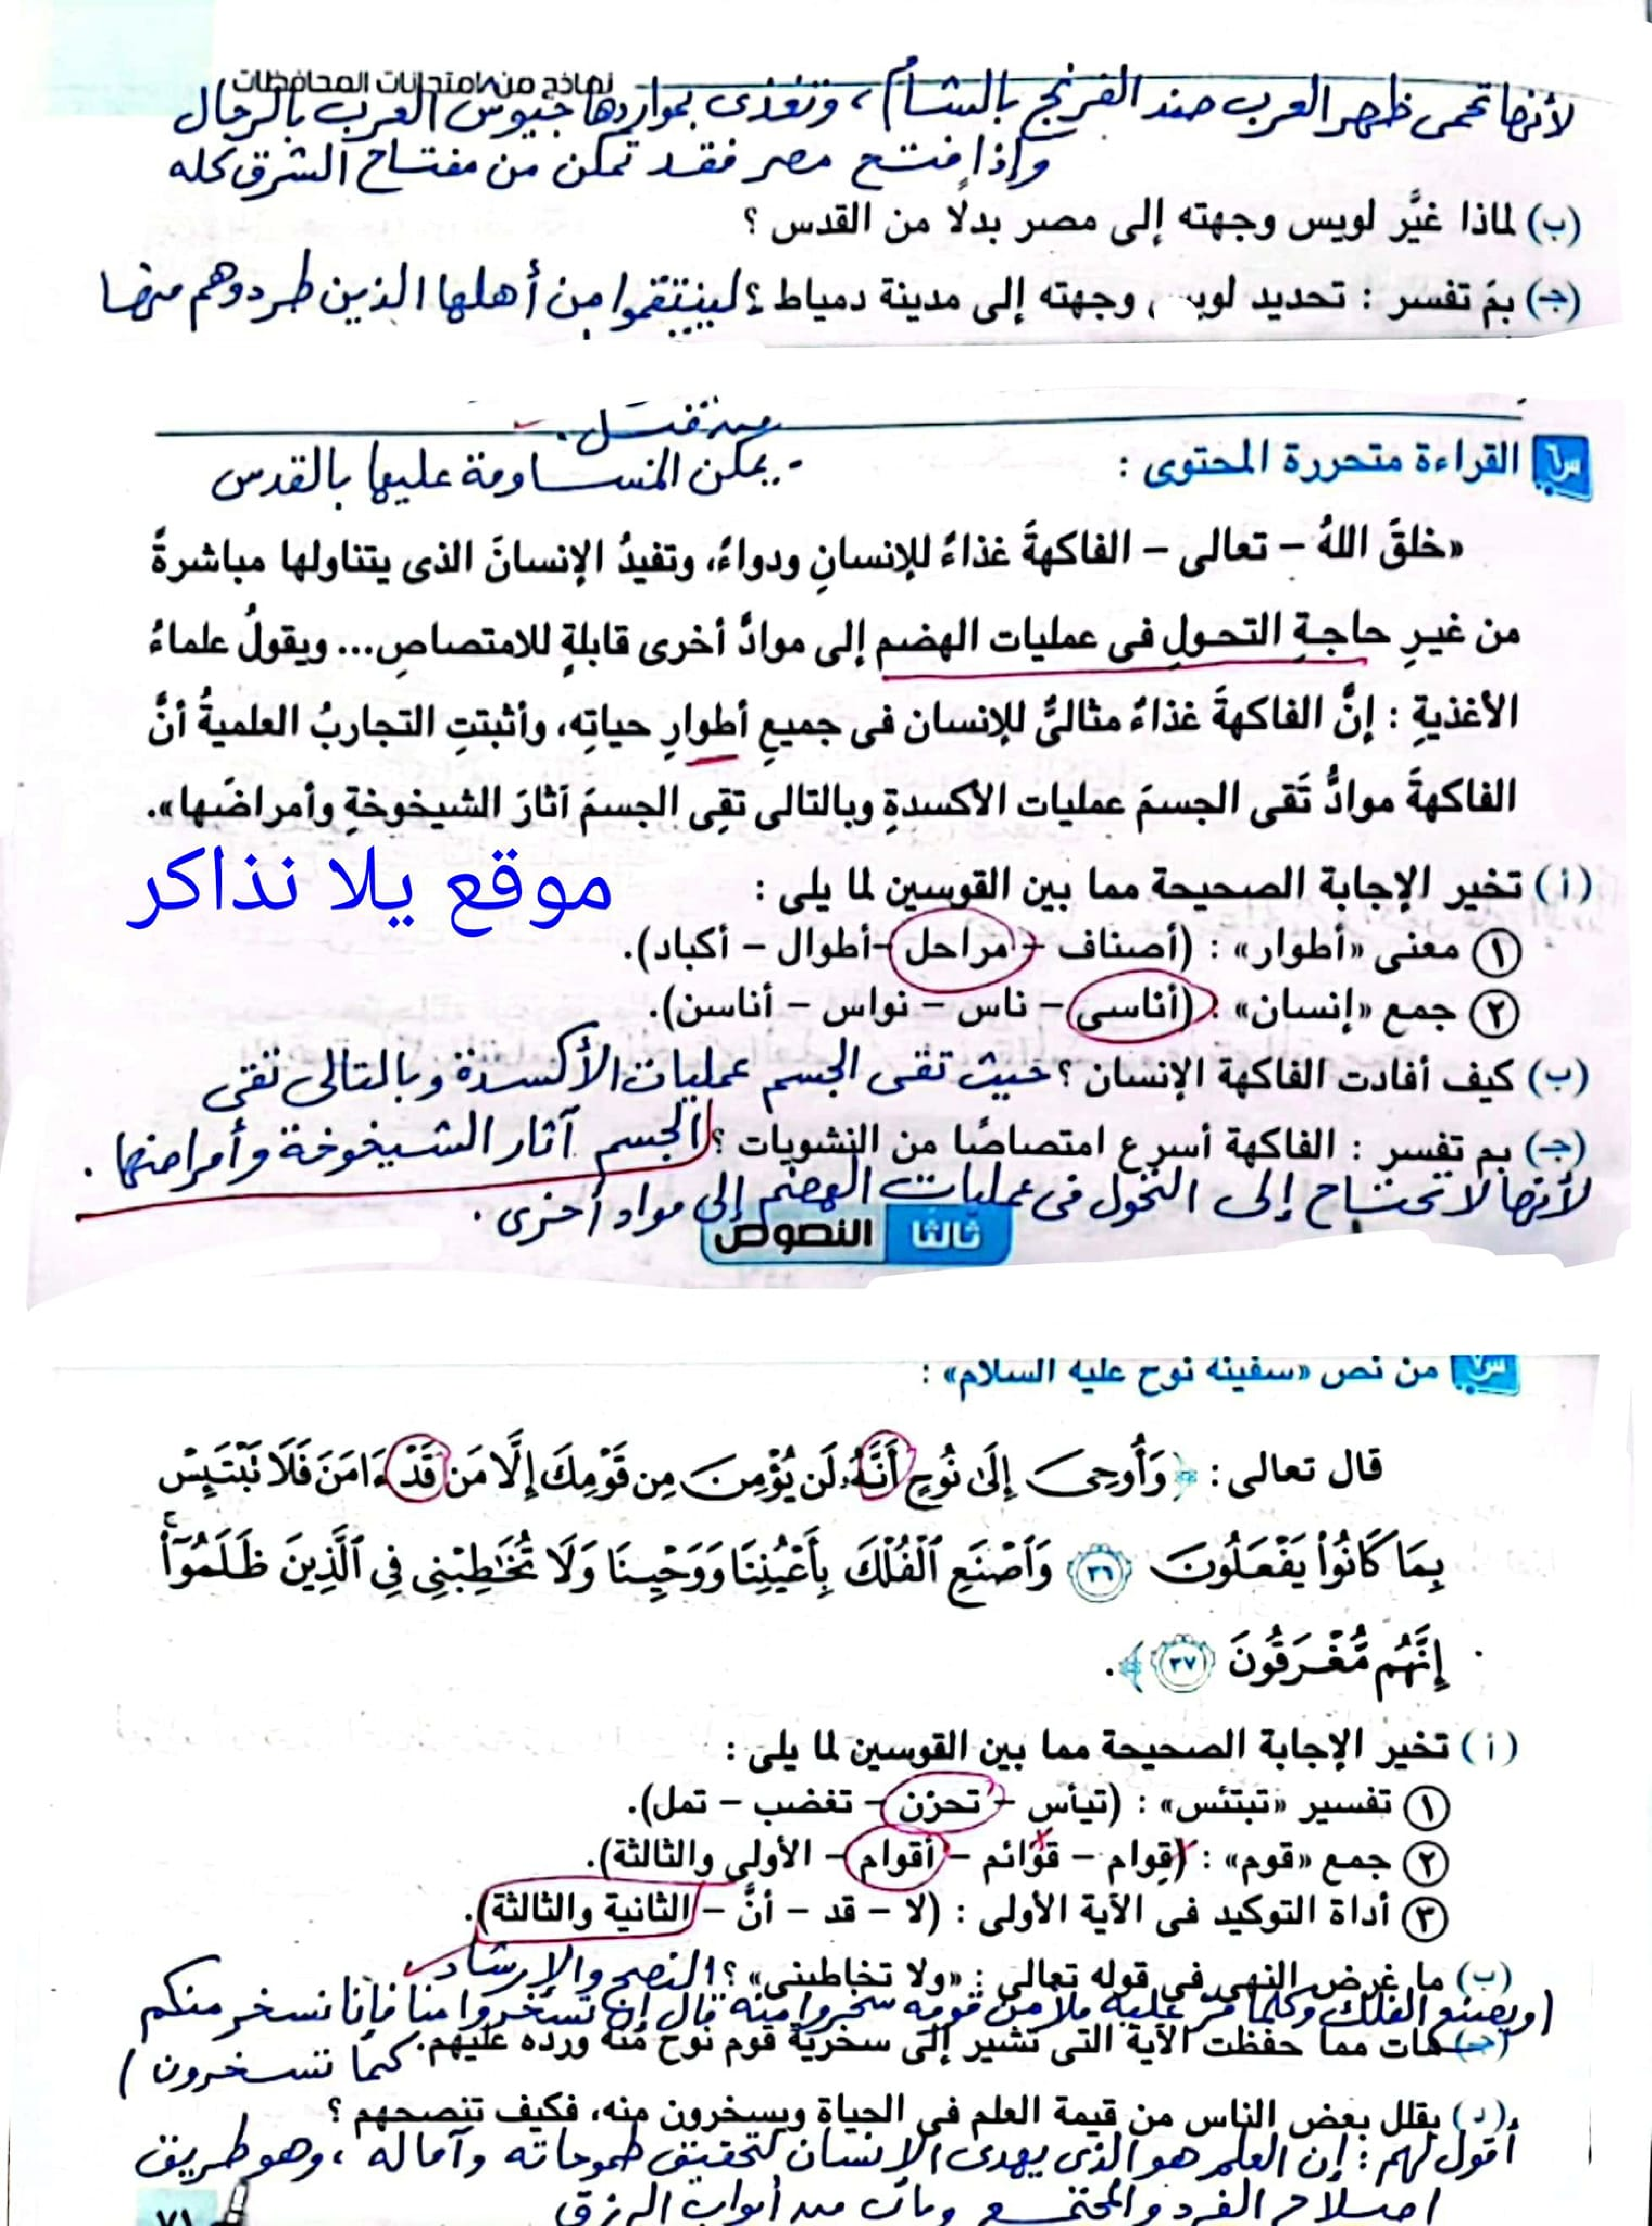 نماذج من امتحانات المحافظات
لأنها تحمى ظهر العرب ضد الفرنج بالشام، وتغذى بمواردها جيوش العرب بالرجال
وإذا فتح مصر فقد تمكن من مفتاح الشرق كله
(ب) لماذا غيَّر لويس وجهته إلى مصر بدلًا من القدس ؟
(جـ) بمَ تفسر : تحديد لويس وجهته إلى مدينة دمياط ؟ لينتقموا من أهلها الذين طردوهم منها
من قبل.
س٦ القراءة متحررة المحتوى :
- يمكن المساومة عليها بالقدس
«خلقَ اللهُ – تعالى – الفاكهةَ غذاءً للإنسانِ ودواءً، وتفيدُ الإنسانَ الذى يتناولها مباشرةً
من غيرِ حاجةِ التحولِ فى عمليات الهضم إلى موادَّ أخرى قابلةٍ للامتصاصِ... ويقولُ علماءُ
الأغذيةِ : إنَّ الفاكهةَ غذاءٌ مثالىٌّ للإنسان فى جميعِ أطوارِ حياتِه، وأثبتتِ التجاربُ العلميةُ أنَّ
الفاكهةَ موادُّ تَقى الجسمَ عمليات الأكسدةِ وبالتالى تقِى الجسمَ آثارَ الشيخوخةِ وأمراضَها».
موقع يلا نذاكر
(أ) تخير الإجابة الصحيحة مما بين القوسين لما يلى :
١ معنى «أطوار» : (أصناف – مراحل – أطوال – أكباد).
٢ جمع «إنسان» : (أناسى – ناس – نواس – أناسن).
(ب) كيف أفادت الفاكهة الإنسان ؟ حيث تقى الجسم عمليات الأكسدة وبالتالى تقى
الجسم آثار الشيخوخة وأمراضها .
(جـ) بم تفسر : الفاكهة أسرع امتصاصًا من النشويات ؟
لأنها لا تحتاج إلى التحول فى عمليات الهضم إلى مواد أخرى .
ثالثا النصوص
س٧ من نص «سفينة نوح عليه السلام» :
قال تعالى : ﴿ وَأُوحِىَ إِلَىٰ نُوحٍ أَنَّهُۥ لَن يُؤْمِنَ مِن قَوْمِكَ إِلَّا مَن قَدْ ءَامَنَ فَلَا تَبْتَئِسْ
بِمَا كَانُوا۟ يَفْعَلُونَ ٣٦ وَٱصْنَعِ ٱلْفُلْكَ بِأَعْيُنِنَا وَوَحْيِنَا وَلَا تُخَٰطِبْنِى فِى ٱلَّذِينَ ظَلَمُوٓا۟ ۚ
إِنَّهُم مُّغْرَقُونَ ٣٧ ﴾.
(أ) تخير الإجابة الصحيحة مما بين القوسين لما يلى :
١ تفسير «تبتئس» : (تيأس – تحزن – تغضب – تمل).
٢ جمع «قوم» : (قِوام – قوائم – أقوام – الأولى والثالثة).
٣ أداة التوكيد فى الآية الأولى : (لا – قد – أنَّ – الثانية والثالثة).
(ب) ما غرض النهى فى قوله تعالى : «ولا تخاطبنى» ؟ النصح والإرشاد
(ويصنع الفلك وكلما مر عليه ملأ من قومه سخروا منه قال إن تسخروا منا فإنا نسخر منكم
(جـ) هات مما حفظت الآية التى تشير إلى سخرية قوم نوح منه ورده عليهم.
كما تسخرون )
(د) يقلل بعض الناس من قيمة العلم فى الحياة ويسخرون منه، فكيف تنصحهم ؟
أقول لهم : إن العلم هو الذى يهدى الإنسان لتحقيق طموحاته وآماله ، وهو طريق
اصلاح الفرد والمجتمع وباب من أبواب الرزق
٧١